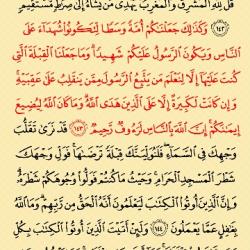 قُل لِّلَّهِ الْمَشْرِقُ وَالْمَغْرِبُ يَهْدِى مَن يَشَآءُ إِلَىٰ صِرَٰطٍ مُّسْتَقِيمٍ
﴿١٤٢﴾ وَكَذَٰلِكَ جَعَلْنَٰكُمْ أُمَّةً وَسَطًا لِّتَكُونُوا۟ شُهَدَآءَ عَلَى
النَّاسِ وَيَكُونَ الرَّسُولُ عَلَيْكُمْ شَهِيدًا وَمَا جَعَلْنَا الْقِبْلَةَ الَّتِى
كُنتَ عَلَيْهَآ إِلَّا لِنَعْلَمَ مَن يَتَّبِعُ الرَّسُولَ مِمَّن يَنقَلِبُ عَلَىٰ عَقِبَيْهِ
وَإِن كَانَتْ لَكَبِيرَةً إِلَّا عَلَى الَّذِينَ هَدَى اللَّهُ وَمَا كَانَ اللَّهُ لِيُضِيعَ
إِيمَٰنَكُمْ إِنَّ اللَّهَ بِالنَّاسِ لَرَءُوفٌ رَّحِيمٌ ﴿١٤٣﴾ قَدْ نَرَىٰ تَقَلُّبَ
وَجْهِكَ فِى السَّمَآءِ فَلَنُوَلِّيَنَّكَ قِبْلَةً تَرْضَىٰهَا فَوَلِّ وَجْهَكَ
شَطْرَ الْمَسْجِدِ الْحَرَامِ وَحَيْثُ مَا كُنتُمْ فَوَلُّوا۟ وُجُوهَكُمْ شَطْرَهُ
وَإِنَّ الَّذِينَ أُوتُوا۟ الْكِتَٰبَ لَيَعْلَمُونَ أَنَّهُ الْحَقُّ مِن رَّبِّهِمْ وَمَا اللَّهُ
بِغَٰفِلٍ عَمَّا يَعْمَلُونَ ﴿١٤٤﴾ وَلَئِنْ أَتَيْتَ الَّذِينَ أُوتُوا۟ الْكِتَٰبَ بِكُلِّ